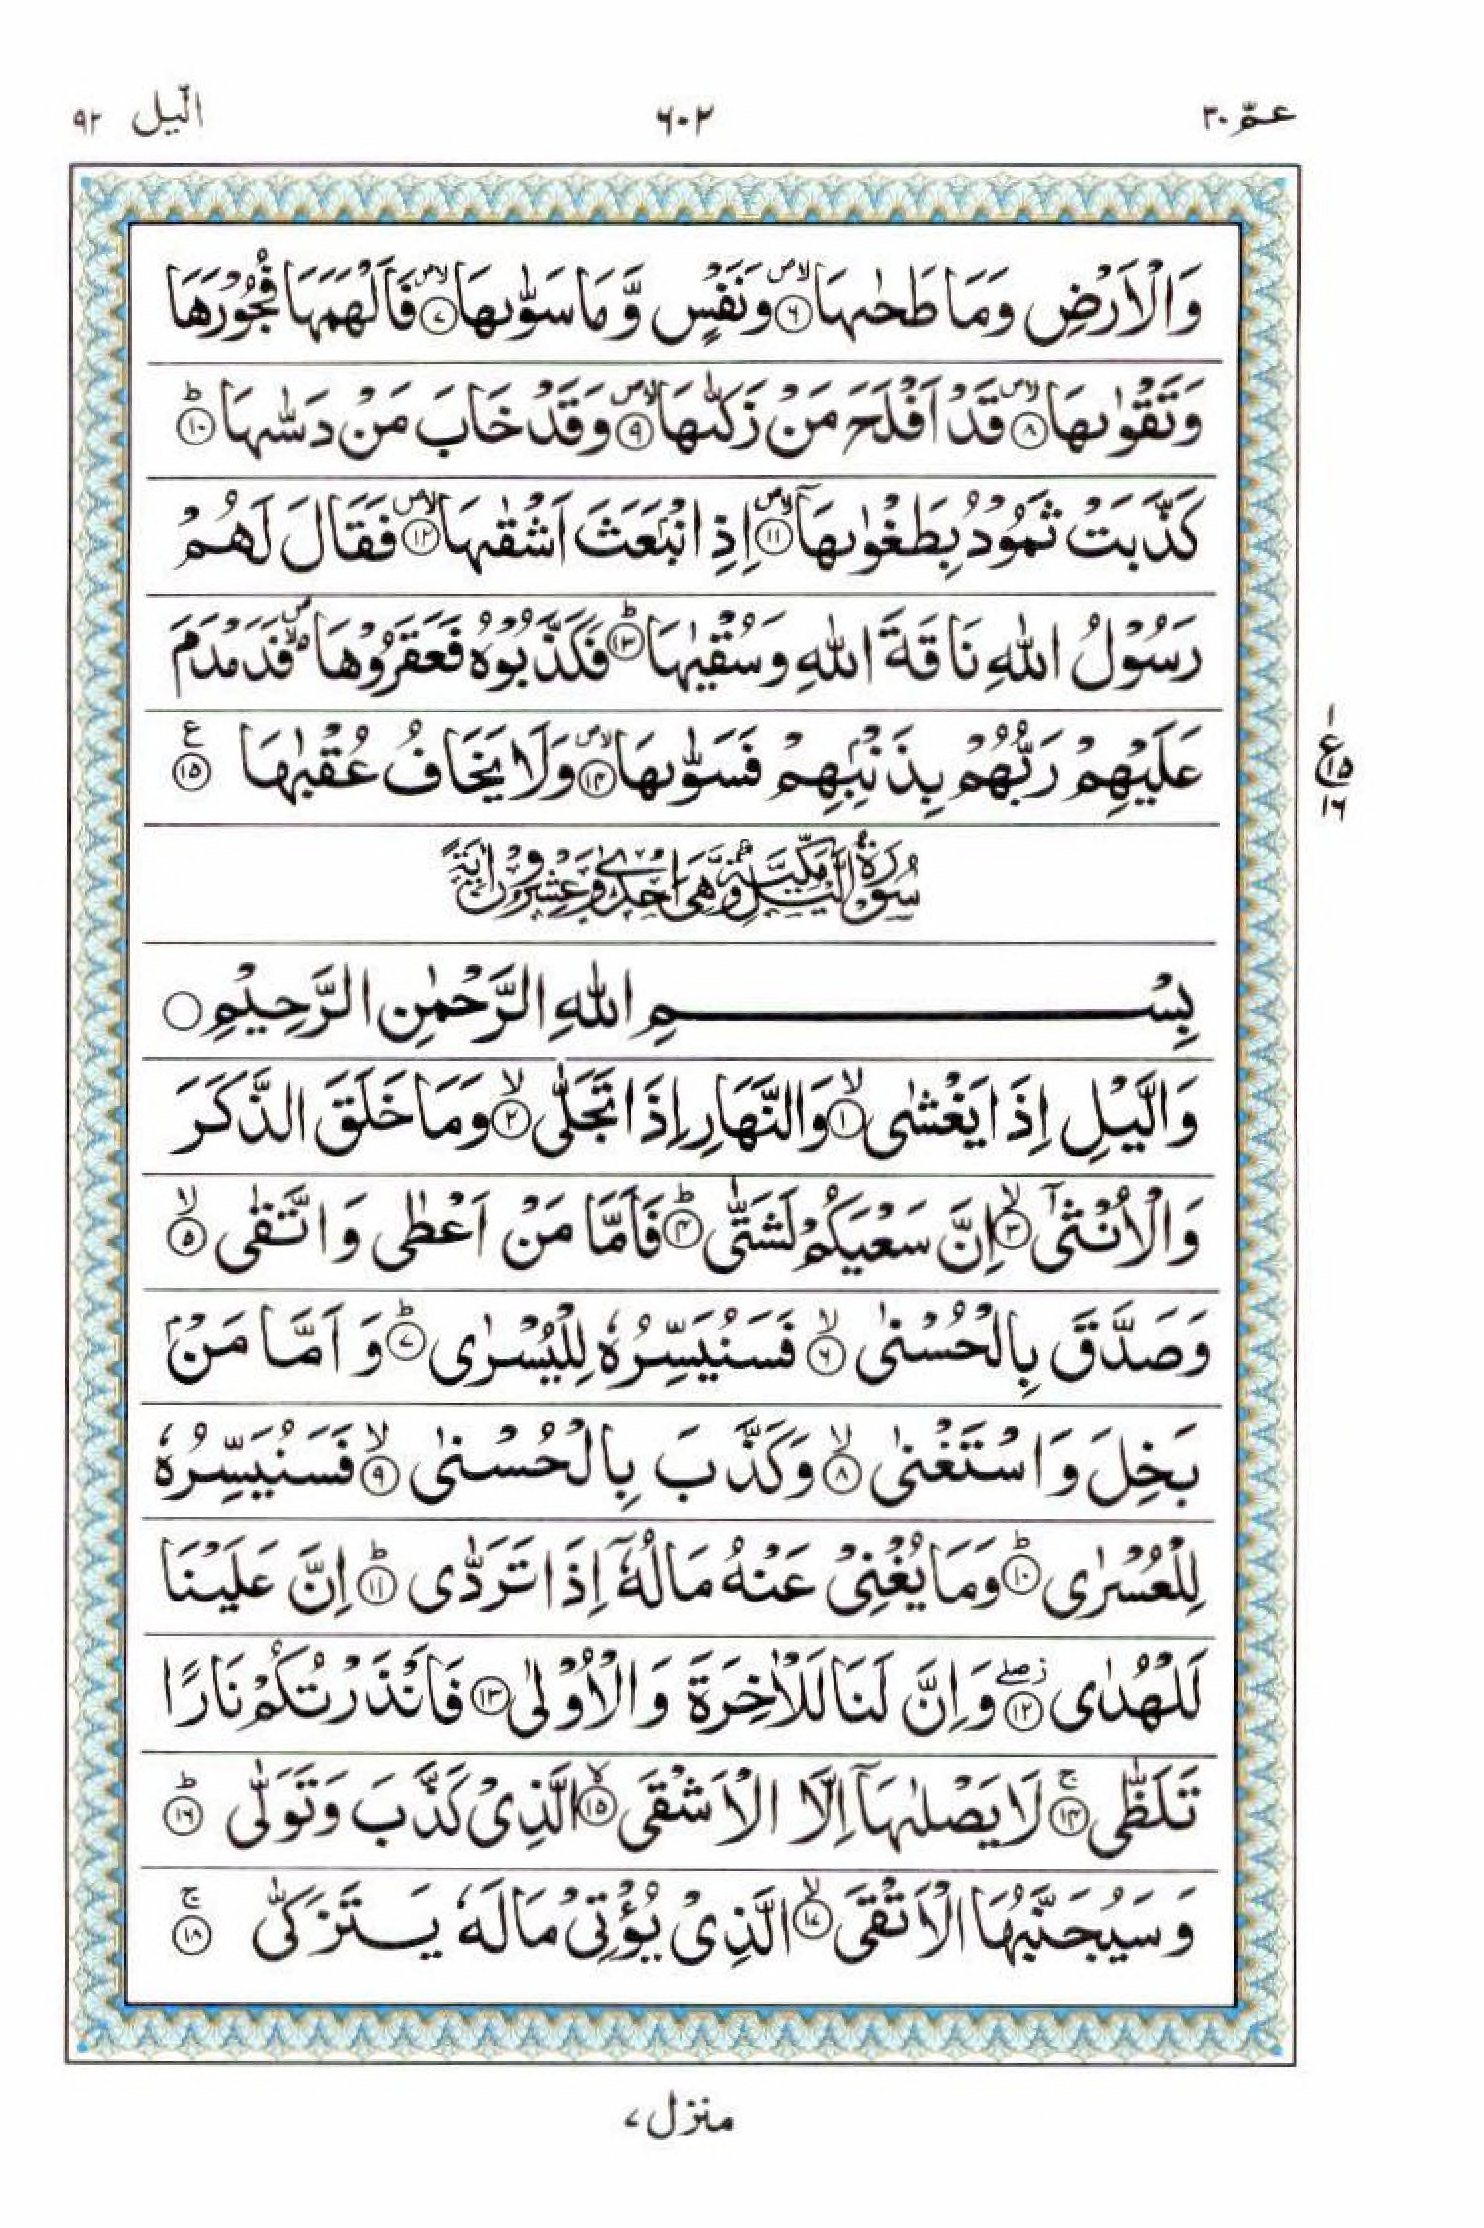 عمّ ۳۰
۶۰۲
الّیل ۹۲
وَالْاَرْضِ وَمَا طَحٰىهَا ۪ۙۙ﴿۶﴾ وَنَفْسٍ وَّمَا سَوّٰىهَا ۪ۙۙ﴿۷﴾ فَاَلْهَمَهَا فُجُوْرَهَا
وَتَقْوٰىهَا ۪ۙۙ﴿۸﴾ قَدْ اَفْلَحَ مَنْ زَكّٰىهَا ۪ۙۙ﴿۹﴾ وَقَدْ خَابَ مَنْ دَسّٰىهَا ؕ﴿۱۰﴾
كَذَّبَتْ ثَمُوْدُ بِطَغْوٰىهَاۤ ۪ۙۙ﴿۱۱﴾ اِذِ انْۢبَعَثَ اَشْقٰىهَا ۪ۙۙ﴿۱۲﴾ فَقَالَ لَهُمْ
رَسُوْلُ اللّٰهِ نَاقَةَ اللّٰهِ وَسُقْيٰهَا ؕ﴿۱۳﴾ فَكَذَّبُوْهُ فَعَقَرُوْهَا ۪ۙۙ فَدَمْدَمَ
عَلَيْهِمْ رَبُّهُمْ بِذَنْۢبِهِمْ فَسَوّٰىهَا ۪ۙۙ﴿۱۴﴾ وَلَا يَخَافُ عُقْبٰهَا ﴿۱۵﴾ع
۱
ع ۱۵
۱۶
سُوْرَةُ الَّيْلِ مَكِّيَّةٌ وَّهِيَ اِحْدٰى وَعِشْرُوْنَ اٰيَةً
بِسْمِ اللّٰهِ الرَّحْمٰنِ الرَّحِيْمِ
وَالَّيْلِ اِذَا يَغْشٰى ۙ﴿۱﴾ وَالنَّهَارِ اِذَا تَجَلّٰى ۙ﴿۲﴾ وَمَا خَلَقَ الذَّكَرَ
وَالْاُنْثٰۤى ۙ﴿۳﴾ اِنَّ سَعْيَكُمْ لَشَتّٰى ؕ﴿۴﴾ فَاَمَّا مَنْ اَعْطٰى وَاتَّقٰى ۙ﴿۵﴾
وَصَدَّقَ بِالْحُسْنٰى ۙ﴿۶﴾ فَسَنُيَسِّرُهٗ لِلْيُسْرٰى ؕ﴿۷﴾ وَاَمَّا مَنْۢ
بَخِلَ وَاسْتَغْنٰى ۙ﴿۸﴾ وَكَذَّبَ بِالْحُسْنٰى ۙ﴿۹﴾ فَسَنُيَسِّرُهٗ
لِلْعُسْرٰى ؕ﴿۱۰﴾ وَمَا يُغْنِيْ عَنْهُ مَالُهٗۤ اِذَا تَرَدّٰى ؕ﴿۱۱﴾ اِنَّ عَلَيْنَا
لَلْهُدٰى ۖ﴿۱۲﴾ وَاِنَّ لَنَا لَلْاٰخِرَةَ وَالْاُوْلٰى ﴿۱۳﴾ فَاَنْذَرْتُكُمْ نَارًا
تَلَظّٰى ۚ﴿۱۴﴾ لَا يَصْلٰىهَاۤ اِلَّا الْاَشْقَى ۙ﴿۱۵﴾ الَّذِيْ كَذَّبَ وَتَوَلّٰى ؕ﴿۱۶﴾
وَسَيُجَنَّبُهَا الْاَتْقَى ۙ﴿۱۷﴾ الَّذِيْ يُؤْتِيْ مَالَهٗ يَتَزَكّٰى ۚ﴿۱۸﴾
منزل ۷